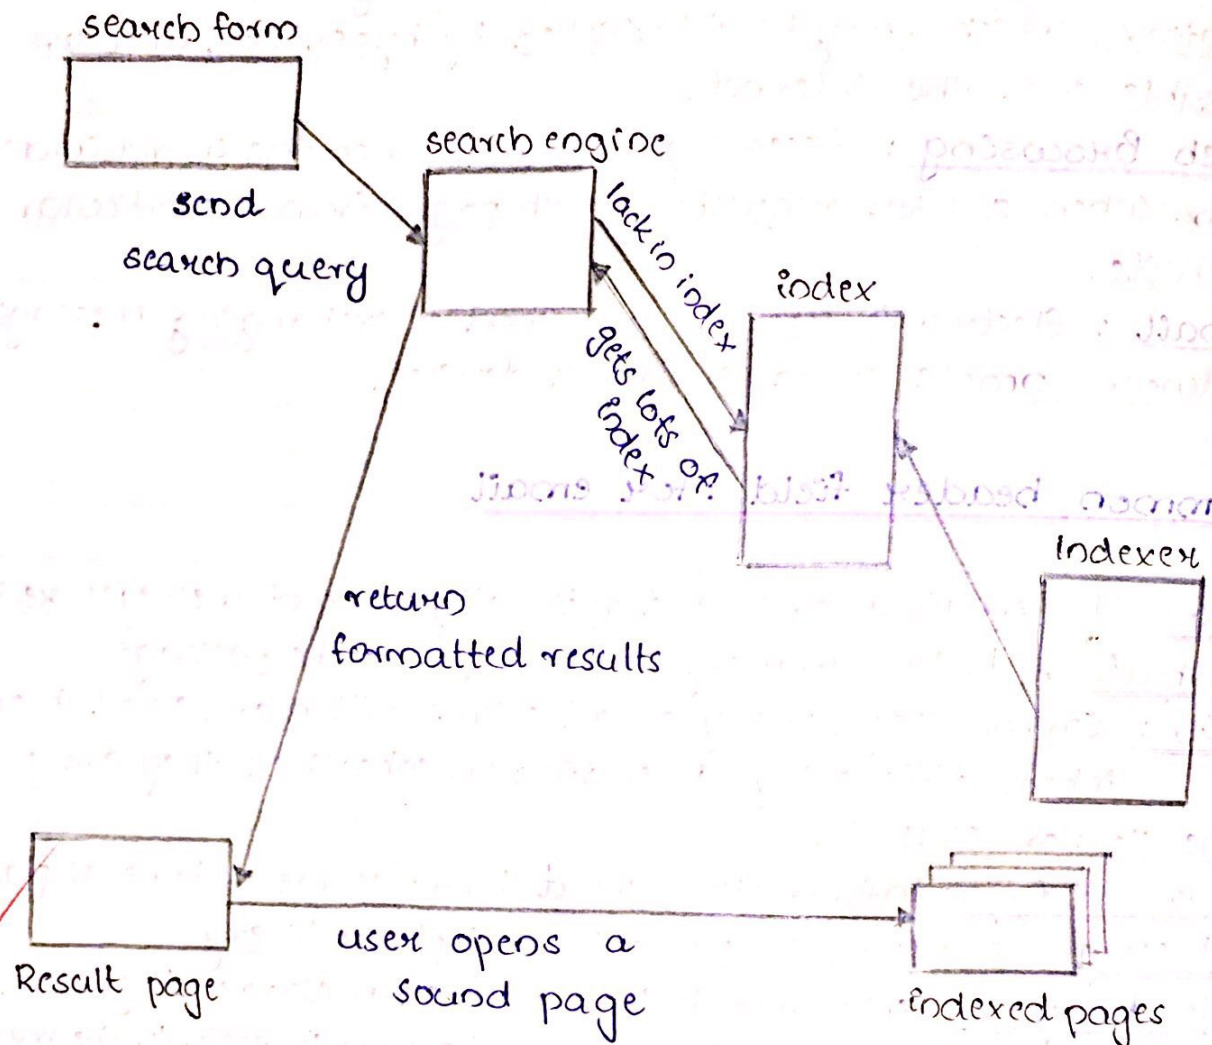 search form
send
search query
search engine
lack in index
gets lots of
index
index
Indexer
return
formatted results
Result page
user opens a
sound page
indexed pages